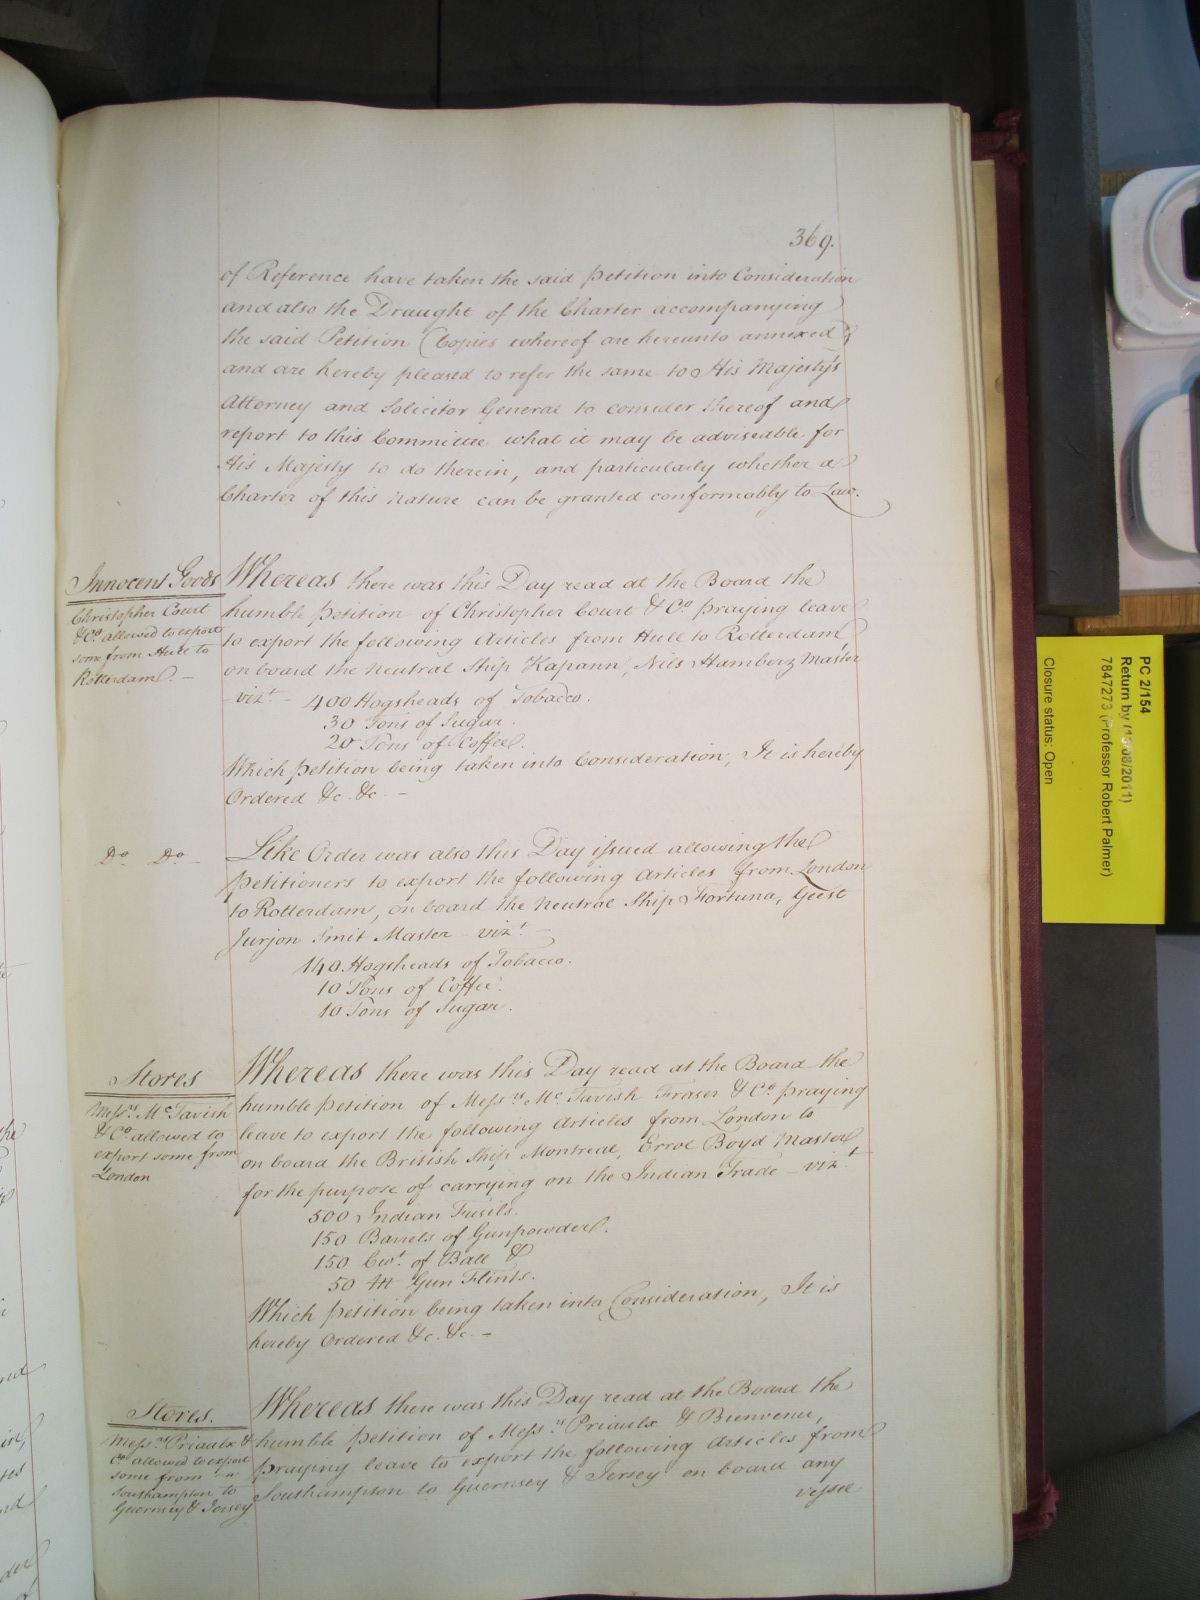 369.
of Reference have taken the said Petition into Consideration
and also the Draught of the Charter accompanying
the said Petition (Copies whereof are hereunto annexed)
and are hereby pleased to refer the same to His Majesty's
Attorney and Solicitor General to consider thereof and
report to this Committee what it may be adviseable for
His Majesty to do therein, and particularly whether a
Charter of this nature can be granted conformably to Law.
Innocent Goods
Christopher Court
& Co. allowed to export
some from Hull to
Rotterdam. -
Whereas there was this Day read at the Board the
humble Petition of Christopher Court & Co. praying leave
to export the following Articles from Hull to Rotterdam
on board the Neutral Ship Kapann, Nils Hamberg Master
- vizt. - 400 Hogsheads of Tobacco.
30 Tons of Sugar.
20 Tons of Coffee.
Which Petition being taken into Consideration, It is hereby
Ordered &c. &c. -
Do. Do.
Like Order was also this Day issued allowing the
Petitioners to export the following Articles from London
to Rotterdam, on board the Neutral Ship Fortuna, Geest
Jurjon Smit Master - vizt. -
140 Hogsheads of Tobacco.
10 Tons of Coffee.
10 Tons of Sugar.
Stores
Messrs. Mc. Tavish
& Co. allowed to
export some from
London
Whereas there was this Day read at the Board the
humble Petition of Messrs. Mc. Tavish Fraser & Co. praying
leave to export the following Articles from London to
on board the British Ship Montreal, Errol Boyd Master
for the purpose of carrying on the Indian Trade - vizt.
500 Indian Fusils.
150 Barrels of Gunpowder.
150 Cwt. of Ball &
50 M Gun Flints.
Which Petition being taken into Consideration, It is
hereby Ordered &c. &c. -
Stores.
Messrs. Priaulx &
Co. allowed to export
some from
Southampton to
Guernsey & Jersey
Whereas there was this Day read at the Board the
humble Petition of Messrs. Priaulx & Bienvenu,
praying leave to export the following Articles from
Southampton to Guernsey & Jersey on board any
vessel
PC 2/154
Return by (/08/2011)
7847273 (Professor Robert Palmer)
Closure status: Open